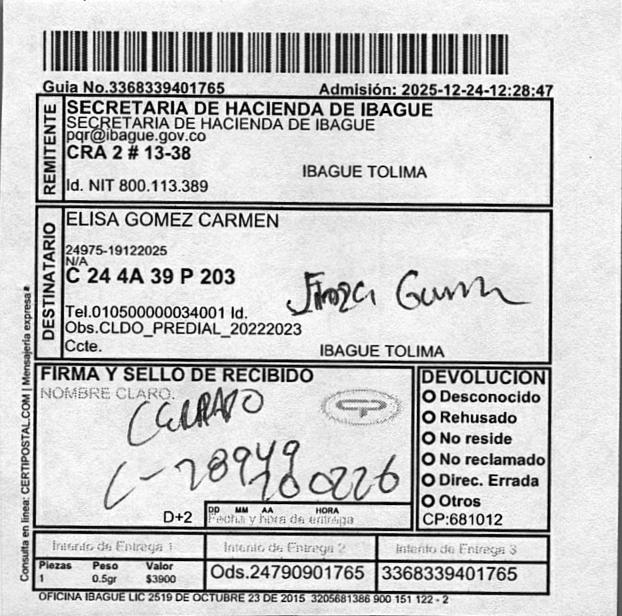 Guia No.3368339401765 Admisión: 2025-12-24-12:28:47
REMITENTE
SECRETARIA DE HACIENDA DE IBAGUE
SECRETARIA DE HACIENDA DE IBAGUE
pqr@ibague.gov.co
CRA 2 # 13-38
IBAGUE TOLIMA
Id. NIT 800.113.389
DESTINATARIO
ELISA GOMEZ CARMEN
24975-19122025
N/A
C 24 4A 39 P 203
Tel.010500000034001 Id.
Obs.CLDO_PREDIAL_20222023
Ccte. IBAGUE TOLIMA
Consulta en linea: CERTIPOSTAL.COM | Mensajería expresa
FIRMA Y SELLO DE RECIBIDO
NOMBRE CLARO.
CERRADO
D+2
DD MM AA HORA
Fecha y hora de entrega
DEVOLUCION
Desconocido
Rehusado
No reside
No reclamado
Direc. Errada
Otros
CP:681012
Intento de Entrega 1 Intento de Entrega 2 Intento de Entrega 3
Piezas Peso Valor
1 0.5gr $3900
Ods.24790901765 3368339401765
OFICINA IBAGUE LIC 2519 DE OCTUBRE 23 DE 2015 3205681386 900 151 122 - 2